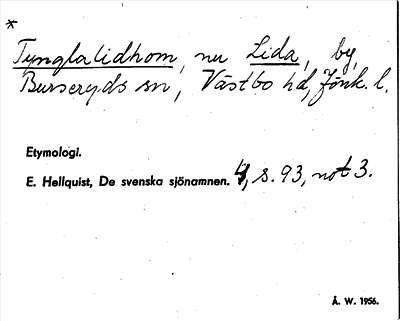 *
Tynglalidhom, nu Lida, by,
Burseryds sn, Västbo hd, Jönk. l.
Etymologi.
E. Hellquist, De svenska sjönamnen. 4, s. 93, not 3.
Å. W. 1956.